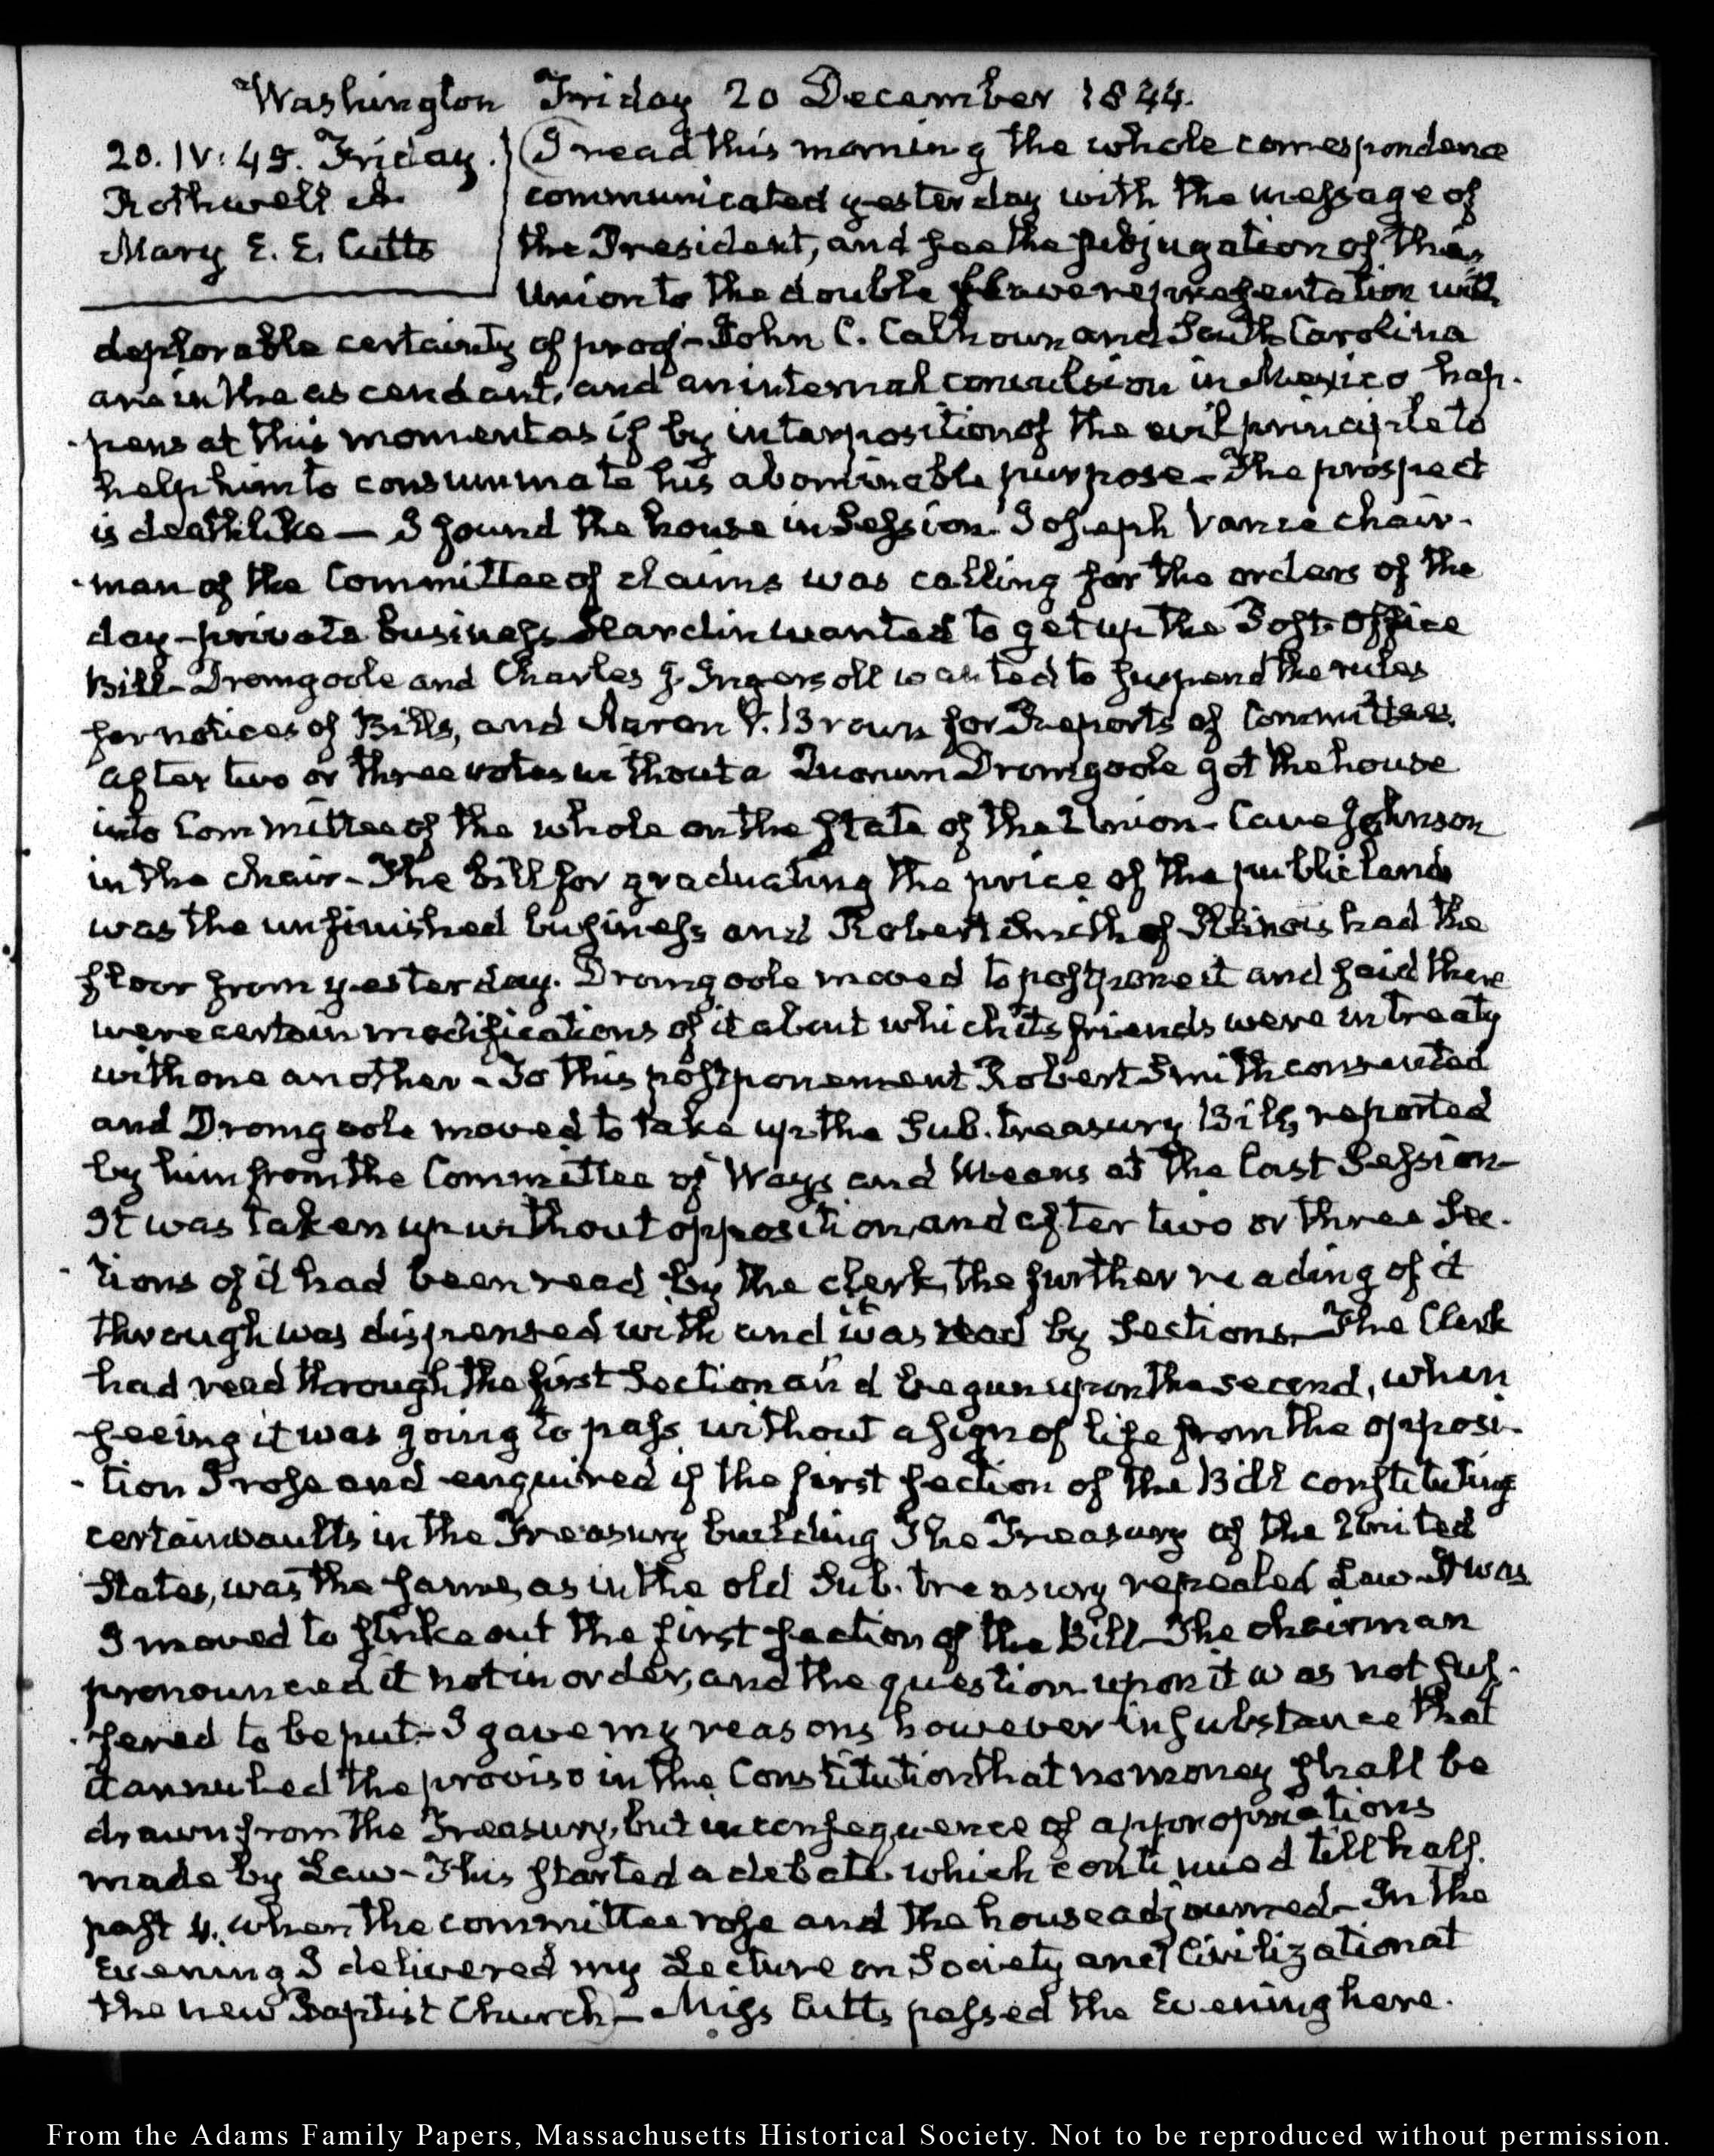 Washington Friday 20 December 1844.
20. IV: 45. Friday.
Rothwell A.
Mary E. E. Cutts
I read this morning the whole correspondence
communicated yesterday with the message of
the President, and see the subjugation of this
Union to the double slave representation with
deplorable certainty of proof - John C. Calhoun and South Carolina
are in the ascendant, and an internal convulsion in Mexico hap-
-pens at this moment as if by interposition of the evil principle to
help him to consummate his abominable purpose - The prospect
is deathlike — I found the house in Session. Joseph Vance chair-
-man of the Committee of claims was calling for the orders of the
day - private business Hardin wanted to get up the Post-Office
Bill - Dromgoole and Charles J. Ingersoll wanted to suspend the rules
for notices of Bills, and Aaron V. Brown for Reports of Committees.
after two or three votes without a Quorum Dromgoole got the house
into Committee of the whole on the State of the Union - Cave Johnson
in the chair - The bill for graduating the price of the public lands
was the unfinished business and Robert Smith of Illinois had the
floor from yesterday. Dromgoole moved to postpone it and said there
were certain modifications of it about which its friends were in treaty
with one another - To this postponement Robert Smith consented
and Dromgoole moved to take up the Sub. treasury Bill, reported
by him from the Committee of Ways and Means at the last Session -
It was taken up without opposition, and after two or three Sec-
-tions of it had been read by the clerk, the further reading of it
through was dispensed with and it was read by Sections - The Clerk
had read through the first Section and begun upon the second, when
seeing it was going to pass without a sign of life from the opposi-
-tion I rose and enquired if the first section of the Bill constituting
certain vaults in the Treasury building The Treasury of the United
States, was the same, as in the old Sub. treasury repealed Law - It was
I moved to strike out the first section of the Bill - The chairman
pronounced it not in order, and the question upon it was not suf-
-fered to be put. - I gave my reasons however in substance that
it annulled the proviso in the Constitution that no money shall be
drawn from the Treasury, but in consequence of appropriations
made by Law - This started a debate which continued till half.
past 4. when the committee rose and the house adjourned - In the
Evening I delivered my Lecture on Society and Civilization at
the new Baptist Church - Miss Cutts passed the Evening here.
From the Adams Family Papers, Massachusetts Historical Society. Not to be reproduced without permission.